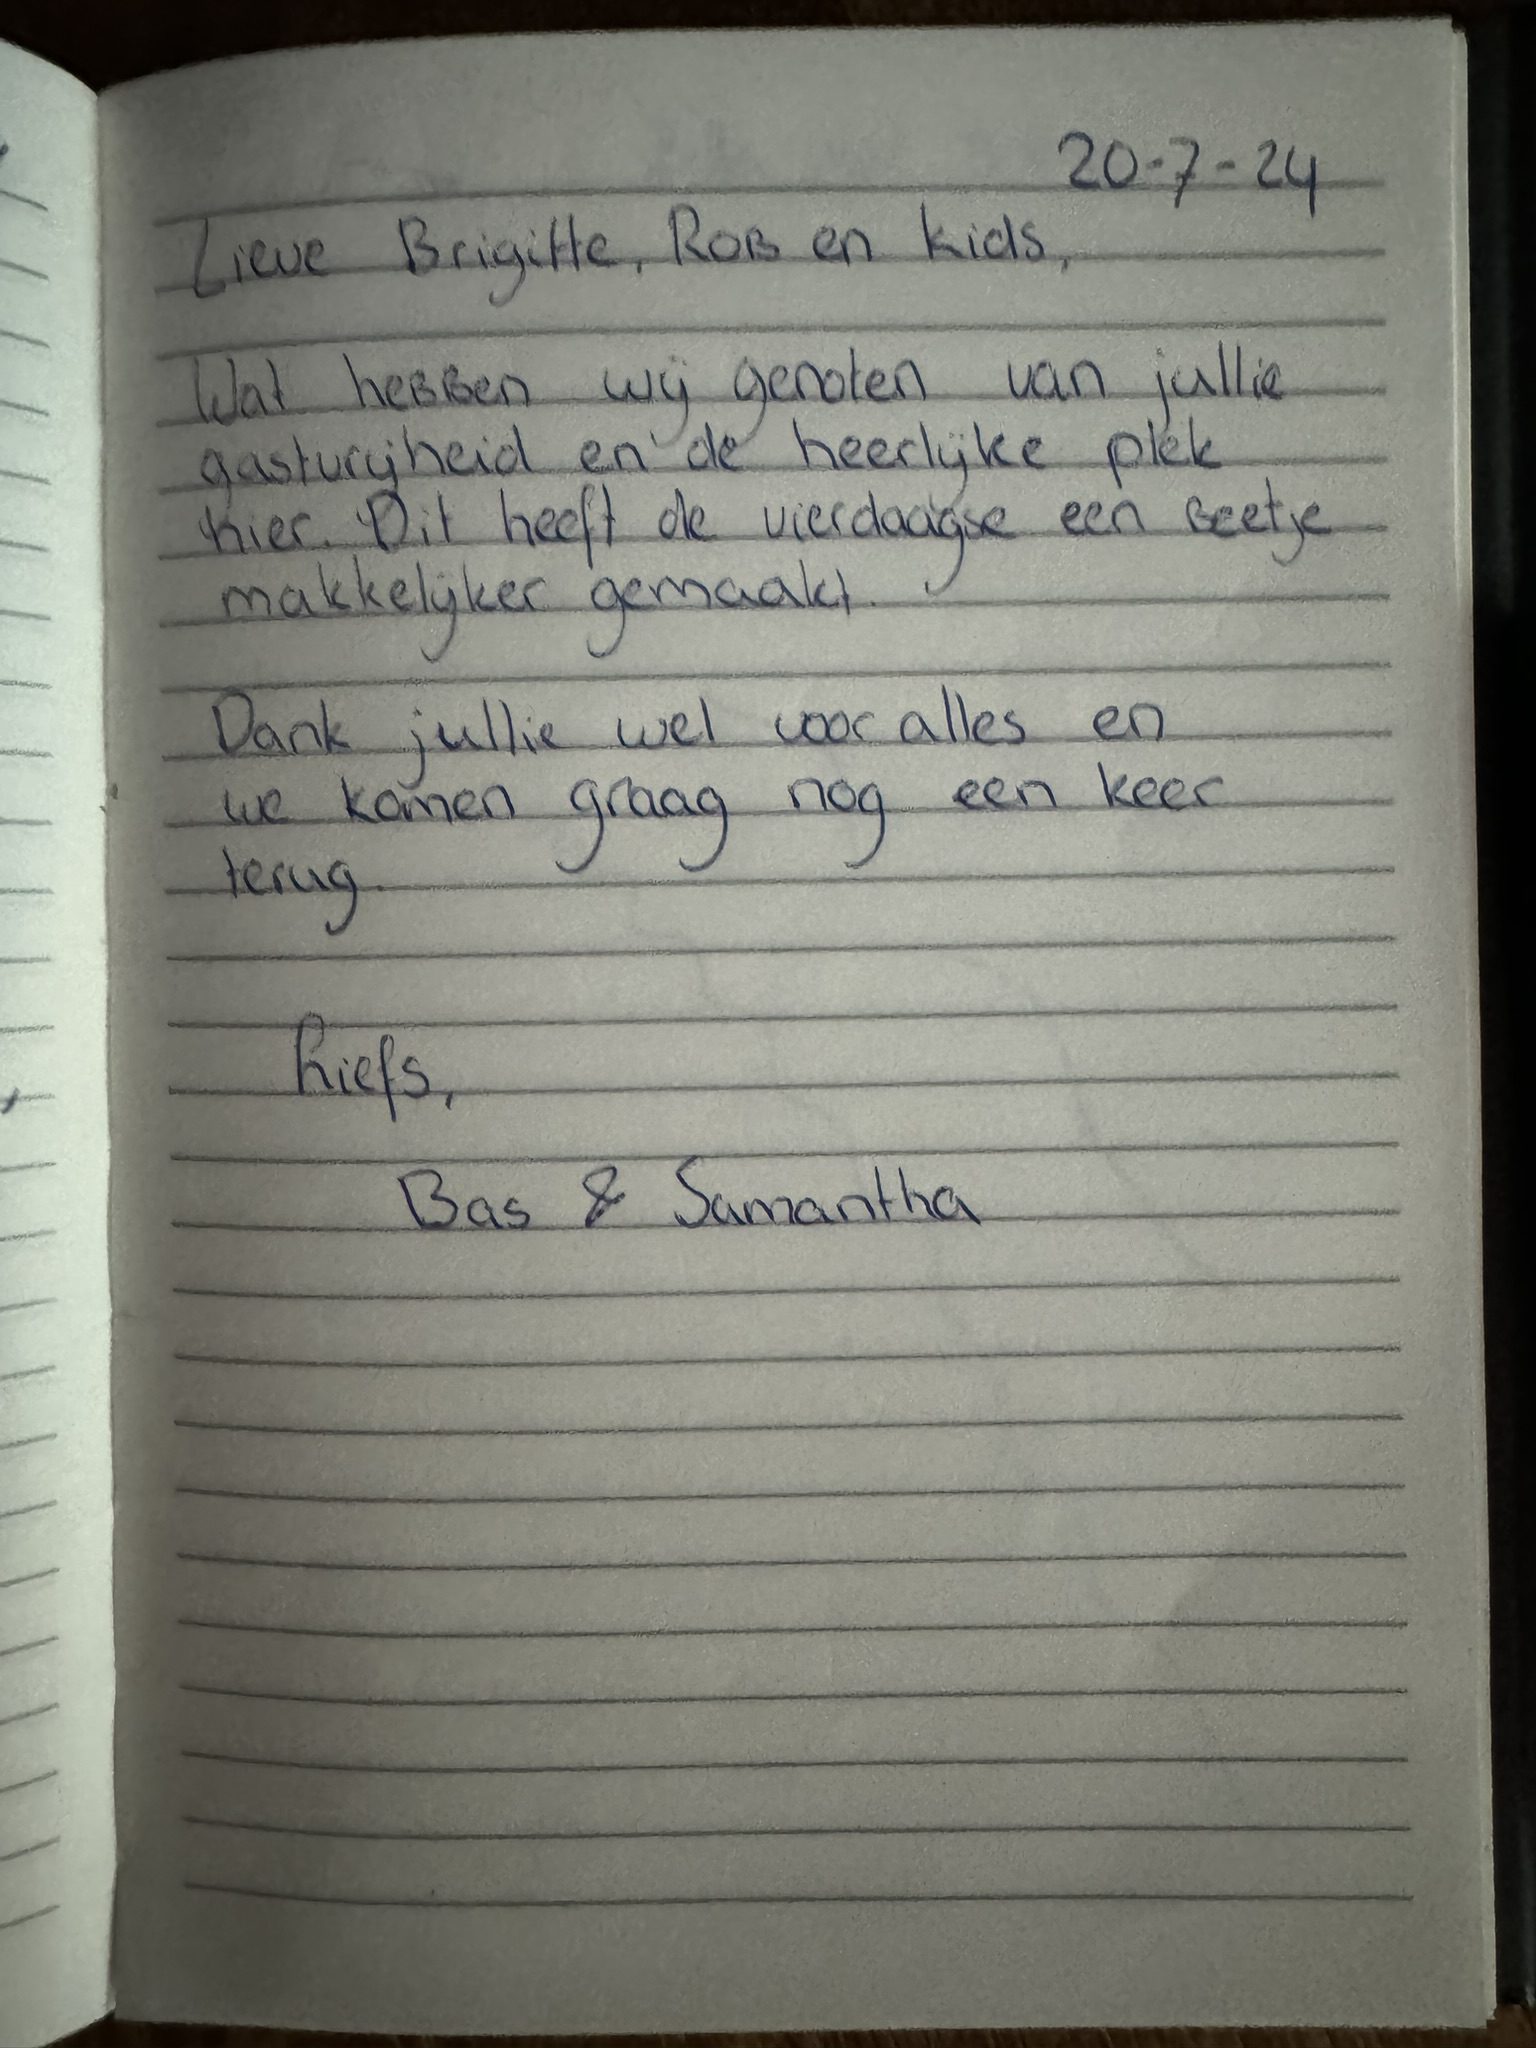 20-7-24
Lieve Brigitte, Rob en kids,
Wat hebben wij genoten van jullie
gastvrijheid en de heerlijke plek
hier. Dit heeft de vierdaagse een beetje
makkelijker gemaakt.
Dank jullie wel voor alles en
we komen graag nog een keer
terug.
Liefs,
Bas & Samantha